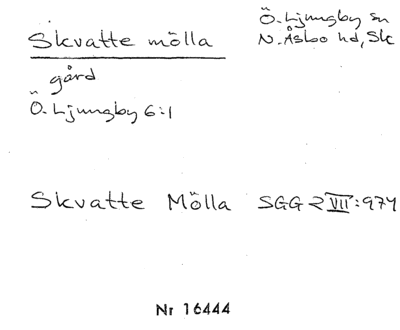 Skvatte mölla
Ö. Ljungby sn
N. Åsbo hd, Sk
gård
Ö. Ljungby 6:1
Skvatte Mölla SGG 2 VII:974
Nr 16444